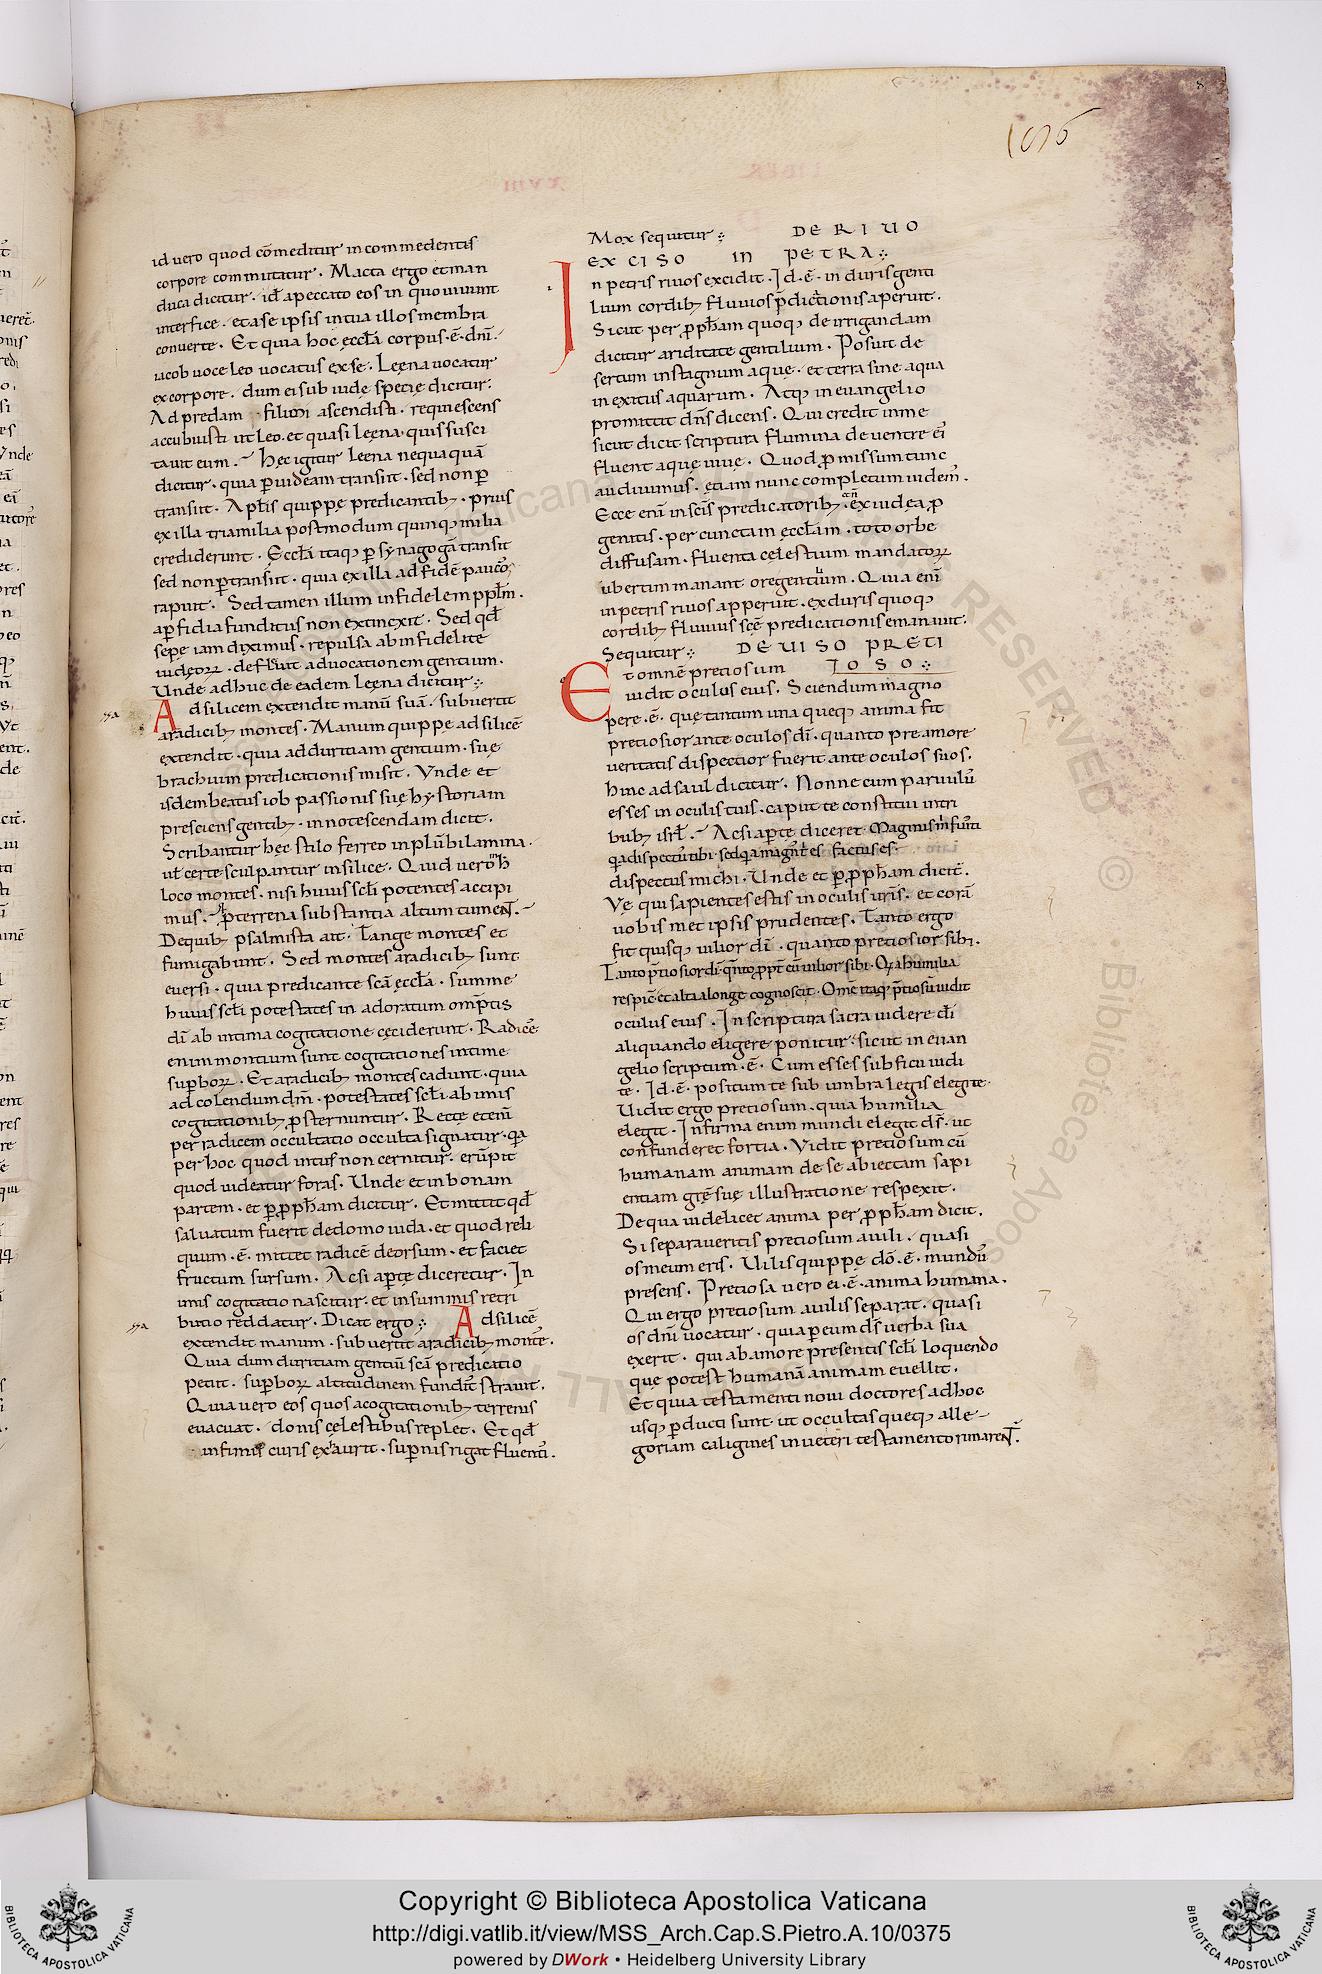 1076
id vero quod cōmeditur in commedentis
corpore commutatur. Macta ergo et man
duca dicitur. id̄ a peccato eos in quo vivunt
interfice. et a se ipsis in tua illos membra
converte. Et quia hoc ęccl̄a corpus .ē. dn̄i.
iacob voce leo vocatus ex se. Leęna vocatur
ex corpore. dum ei sub iudę specię dicitur:
Ad predam filimi ascendisti. requiescens
accubuisti ut leo. et quasi leęna. quis susci
tavit eum. Hęc igitur leena nequaquā
dicitur. quia p̱ viđeam transiit. sed non p̱
transiit. Apl̄is quippe predicantibꝫ. prius
ex illa tria milia postmodum quinqꝫ milia
crediderunt. Ęccl̄a itaqꝫ p̱ synagogā transit
sed non p̱transiit. quia ex illa ad fidē paucos
rapuit. Sed tamen illum infidelem ppl̄m.
a p̱fidia funditus non extinxit. Sed qđ
sepę iam diximus. repulsa ab infidelitate
iudęoꝝ. defluit ad vocationem gentium.
Unde adhuc de eadem Leęna dicitur
Ad silicem extendit manū suā. subvertit
a radicibꝫ montes. Manum quippe ad silicē
extendit. quia ad duritiam gentium. suę
brachium predicationis misit. Vnde et
isdem beatus iob passionis suę hystoriam
presciens gentibꝫ. innotescendam dicit.
Scribantur hęc stilo ferreo in plūbi lamina.
ut̄ certe sculpantur in silice. Quid vero h̄
loco montes. nisi huius sc̄li potentes accipi
mus. p̱ terrena substantia altum tumeɴ̄.
De quibꝫ psalmista ait. Tange montes et
fumigabunt. Sed montes a radicibꝫ sunt
eversi. quia predicante sc̄a ęccl̄a. summe
huius sc̄li potestates in adoratum omp̄tis
dī ab intima cogitatione ceciderunt. Radices
enim montium sunt cogitationes intime
sup̱boꝝ. Et a radicibꝫ montes cadunt. quia
ad colendum dm̄. potestates sc̄li ab imis
cogitationibꝫ ꝓsternuntur. Recte etenī
per radicem occultatio occulta signatur. qa
per hoc quod intus non cernitur. erūpit
quod videatur foras. Unde et in bonam
partem. et p̱ ꝓph̄am dicitur. Et mittit qđ
salvatum fuerit de domo iuda. et quod reli
quum .ē. mittet radicē deorsum. et faciet
fructum sursum. Ac si ap̱te diceretur. In
imis cogitatio nascitur. et in summis retri
butio reddatur. Dicat ergo Ad silicē
extendit manum. subvertit a radicibꝫ montes.
Quia dum duritiam gentiū sc̄a predicatio
petit. sup̱boꝝ altitudinem fundit̄ stravit.
Quia vero eos quos a cogitationibꝫ terrenis
evacuat. donis cęlestibus replet. Et qđ
infimis curis exaurit. sup̱nis rigat fluentis.
Mox sequitur DE RIUO
EXCISO IN PETRA
In petris rivos excidit. Id .ē. in duris genti
lium cordibꝫ fluvios p̄dicationis aperuit.
Sicut per ꝓph̄am quoqꝫ de irrigandam
dicitur ariditate gentilium. Posuit de
sertum in stagnum aquę. et terra sine aqua
in exitus aquarum. Atqꝫ in evangelio
promittit dn̄s dicens. Qui credit in me
sicut dicit scriptura flumina de ventre ei
fluent aquę vivę. Quod ꝓmissum tunc
audivimus. etiam nunc completum videm̄.
Ecce enī in sc̄is predicatoribꝫ. ex iudęa ꝓ
genitis. per cunctam ęccl̄am. toto orbe
diffusam. fluenta cęlestium mandatoꝝ
ubertim manant ore gentium. Quia enī
in petris rivos apperuit. ex duris quoqꝫ
cordibꝫ fluvius sc̄ę predicationis emanavit.
Sequitur DE UISO PRETI
Et omnē preciosum IOSO
vidit oculus eius. Sciendum magno
pere .ē. quę tantum una queqꝫ anima fit
preciosior ante oculos dī. quanto pre amore
veritatis dispectior fuerit ante oculos suos.
hinc ad saul dicitur. Nonne cum parvulus
esses in oculis tuis. caput te constitui in tri
bubꝫ isrl̄. Ac si ap̱te diceret. Magnus m̄ fuisti
q̄a dispectus tibi. sed q̄a magn̄ t̄ es factus es.
dispectus michi. Unde et p̱ ꝓph̄am dicit̄.
Vę qui sapientes estis in oculis vr̄is. et corā
vobis met ipsis prudentes. Tanto ergo
fit quisqꝫ vilior dō. quanto preciosior sibi.
Tanto p̄tiosior dō. qn̄to ꝓpt̄ eū vilior sibi. Qa humilia
respicē et alta a longe cognoscit. Omē itaqꝫ p̄tiosū vidit
oculus eius. In scriptura sacra videre dī
aliquando eligere ponitur. sicut in evan
gelio scriptum .ē. Cum esses sub ficu vidi
te. Id .ē. positum te sub umbra legis elegi te.
Vidit ergo preciosum. quia humilia
elegit. Infirma enim mundi elegit ds̄. ut
confunderet fortia. Vidit preciosum cū
humanam animam de se abiectam sapi
entiam gr̄ę suę illustratione respexit.
De qua videlicet anima per ꝓph̄am dicit.
Si separaveritis preciosum a vili. quasi
os meum eris. Vilis quippe dō .ē. mundus
presens. Preciosa vero ei .ē. anima humana.
Qui ergo preciosum a vilis separat. quasi
os dn̄i vocatur. quia p̱ eum ds̄ verba sua
exerit. qui ab amore presentis sc̄li loquendo
que potest humanā animam evellit.
Et quia testamenti novi doctores ad hoc
usqꝫ p̱ducti sunt. ut occultas queqꝫ alle-
goriam caligines in veteri testamento rimareɴ̄.
Copyright © Biblioteca Apostolica Vaticana
http://digi.vatlib.it/view/MSS_Arch.Cap.S.Pietro.A.10/0375
powered by DWork • Heidelberg University Library
BIBLIOTECA APOSTOLICA VATICANA
BIBLIOTECA APOSTOLICA VATICANA